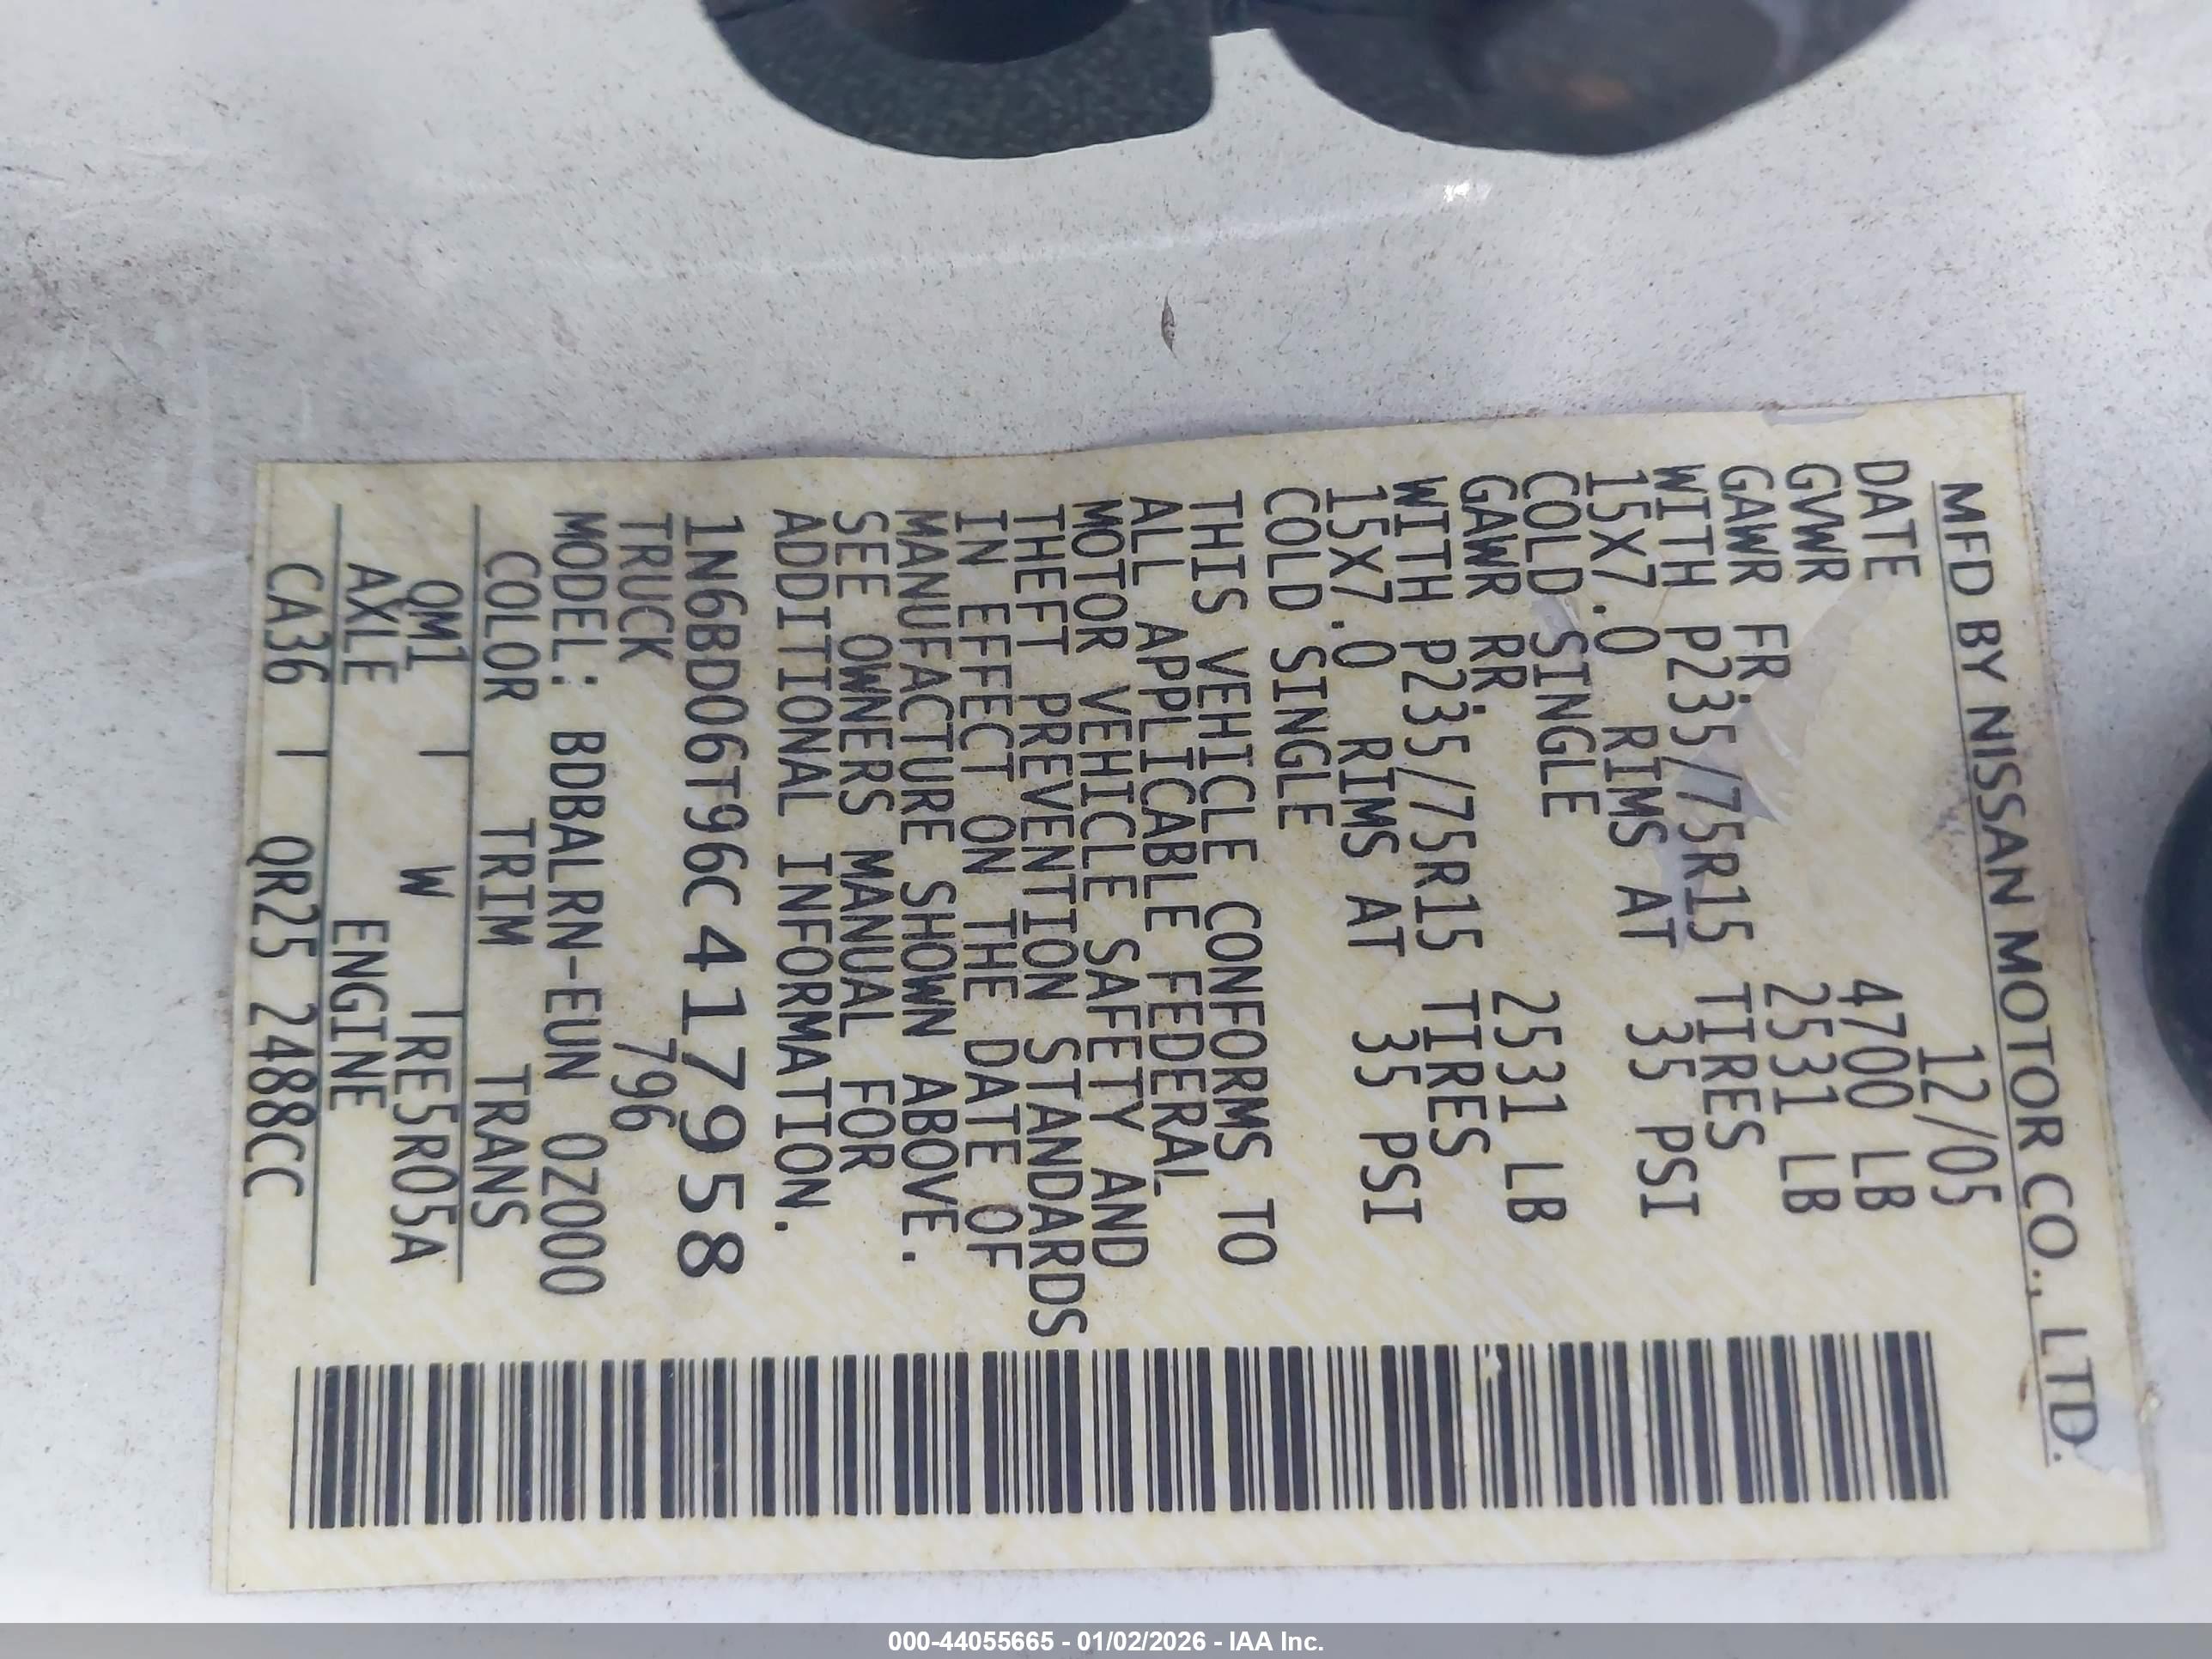 MFD BY NISSAN MOTOR CO., LTD.
DATE 12/05
GVWR 4700 LB
GAWR FR. 2531 LB
WITH P235/75R15 TIRES
15X7.0 RIMS AT 35 PSI
COLD SINGLE
GAWR RR. 2531 LB
WITH P235/75R15 TIRES
15X7.0 RIMS AT 35 PSI
COLD SINGLE
THIS VEHICLE CONFORMS TO
ALL APPLICABLE FEDERAL
MOTOR VEHICLE SAFETY AND
THEFT PREVENTION STANDARDS
IN EFFECT ON THE DATE OF
MANUFACTURE SHOWN ABOVE.
SEE OWNERS MANUAL FOR
ADDITIONAL INFORMATION.
1N6BD06T96C417958
TRUCK 796
MODEL: BDBALRN-EUN 0Z000
COLOR TRIM TRANS
QM1 | W | RE5R05A
AXLE ENGINE
CA36 | QR25 2488CC
000-44055665 - 01/02/2026 - IAA Inc.